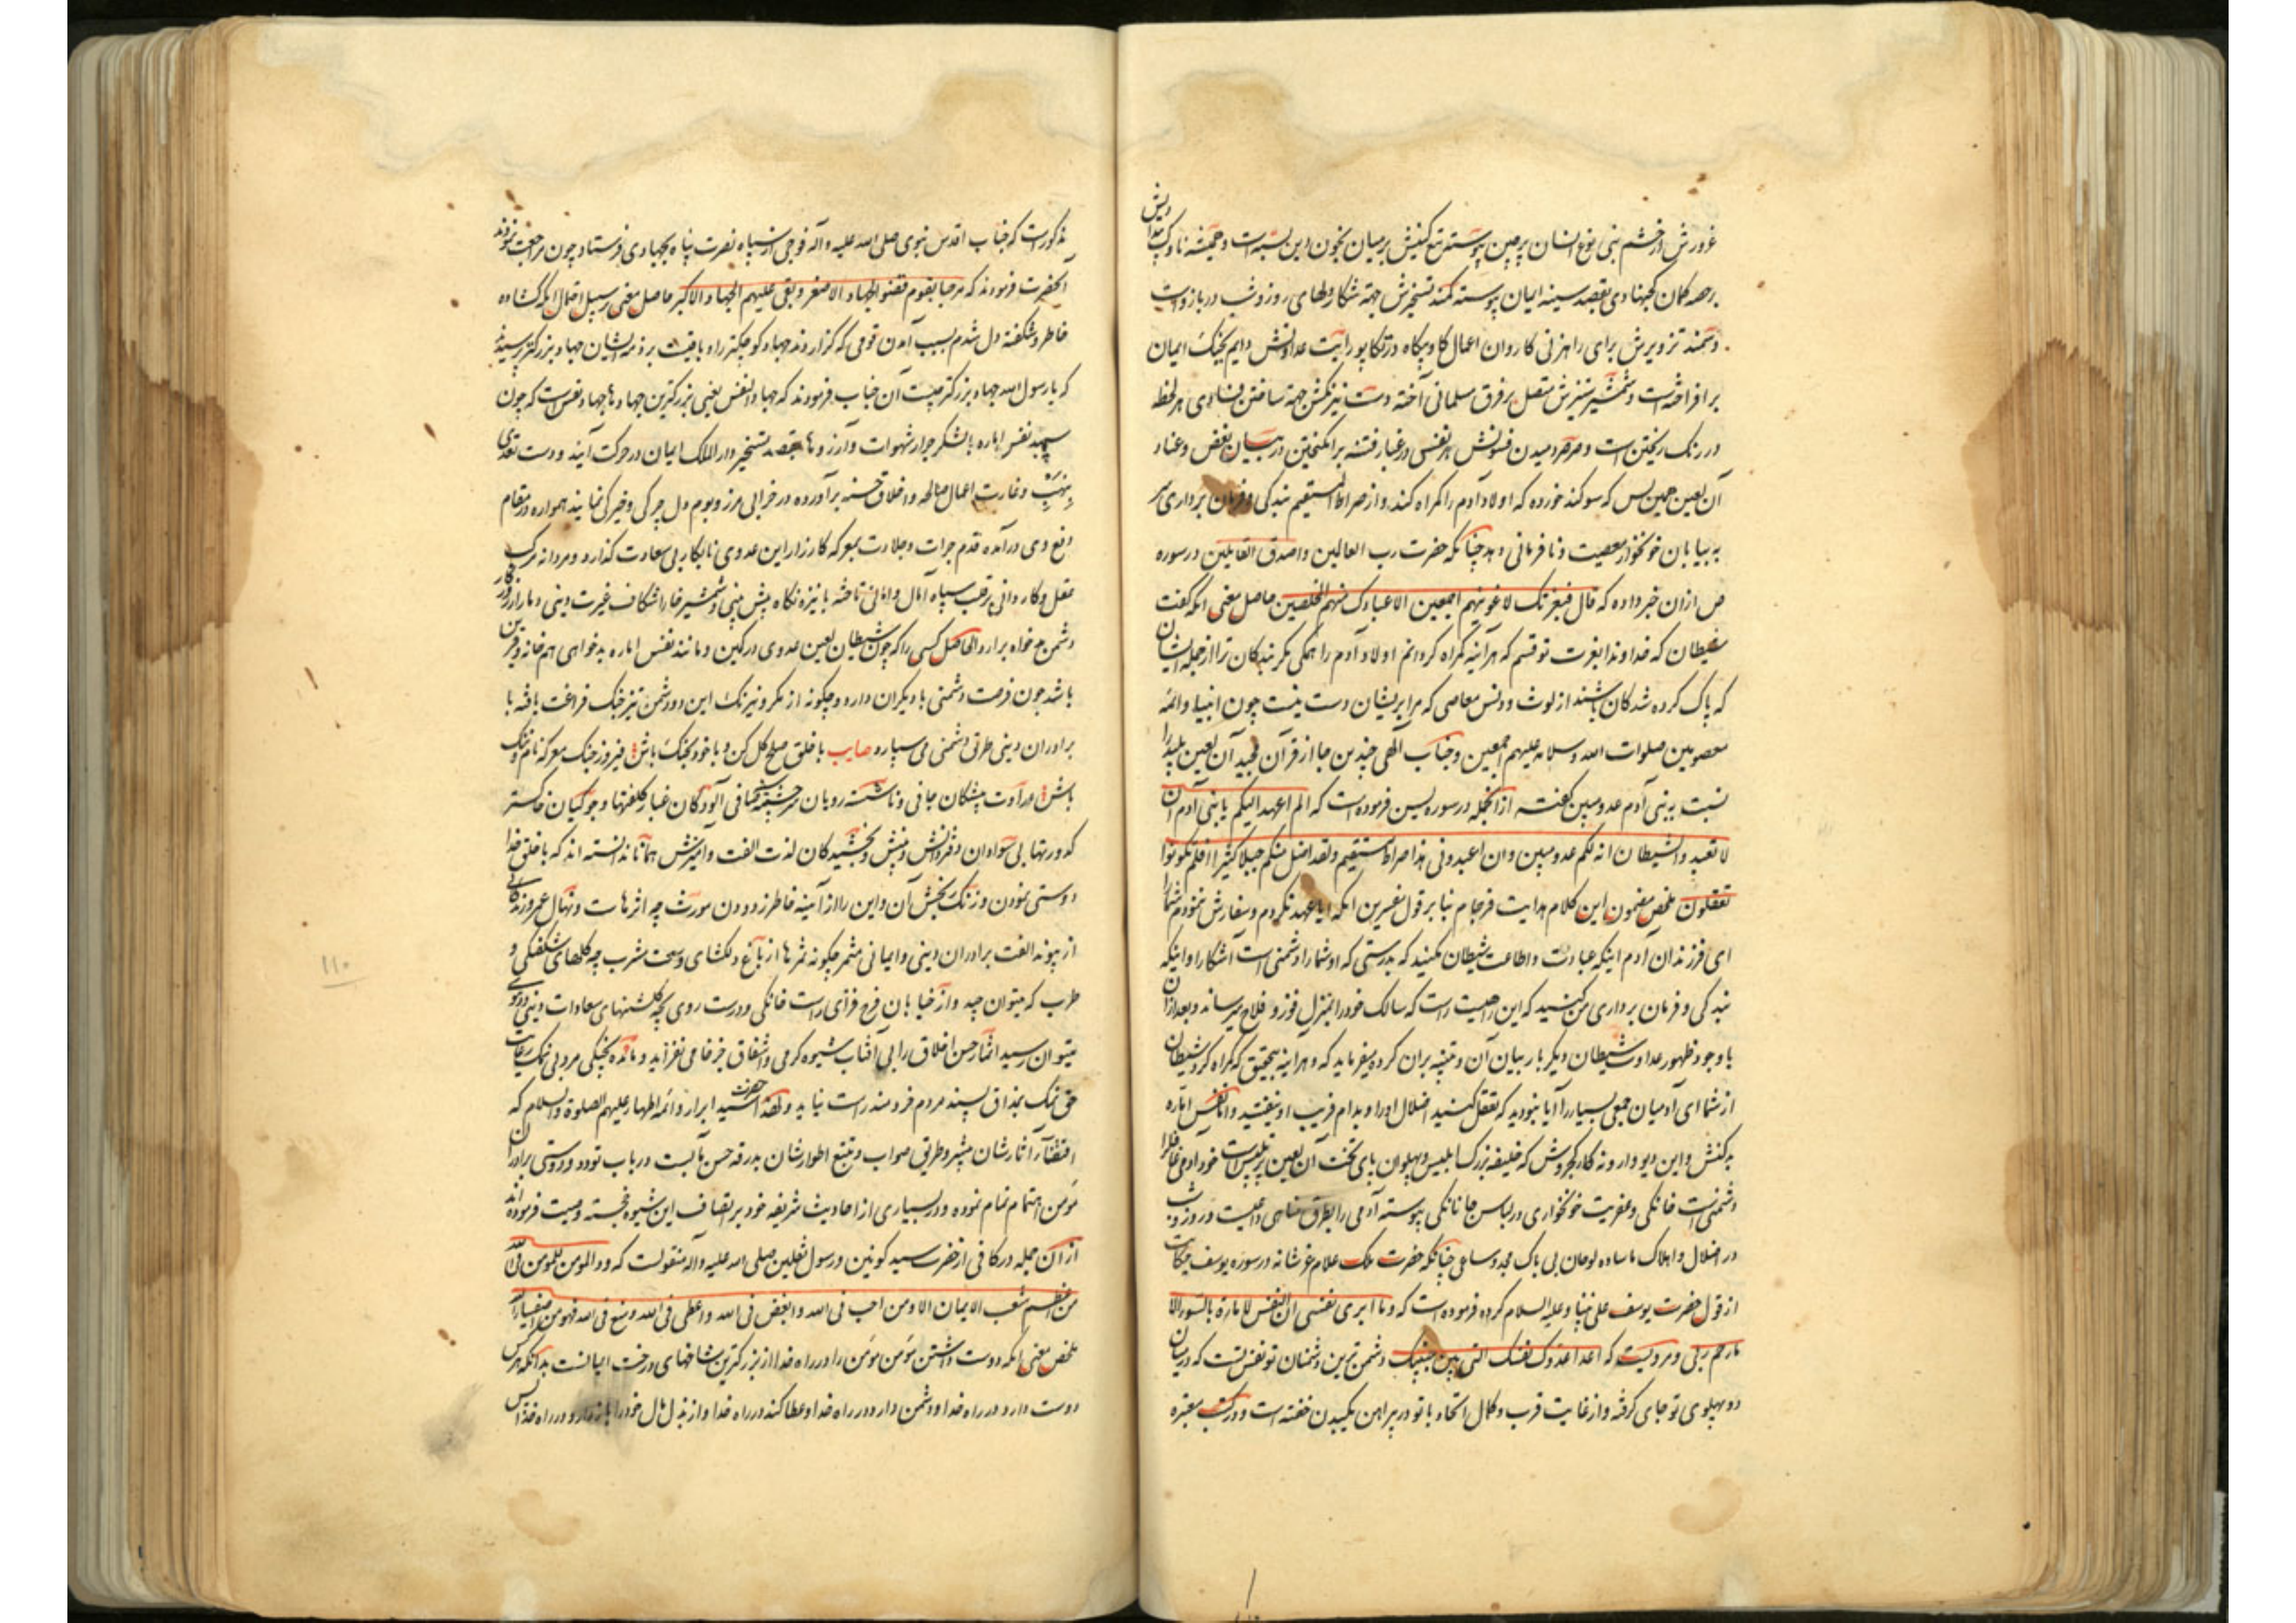 غرورش از خشم بنی نوع انسان پرچین پیوسته تیغ کینش بر میان بخون دین بسته است و خمنه ناوک بیداریش
بر صه کمان کجنهادی بقصد سینه ایمان پیوسته کمند تسخیرش جهة شکار دلهای روز و شب در بازوست
و سمند تزویرش برای راهزنی کاروان اعمال گاه و بیگاه در تکاپو رایت عداوتش دایم بجنگ ایمان
بر افراخته است و شمشیر ستیزش متصل بر فرق مسلمانی آخته دست نیرنگش جهة ساختن فسادی هر لحظه
در رنگ ریختن است و صرصر دمیدن فسونش هر نفسی در غبار فتنه برانگیختن در بیان بغض و عناد
آن لعین همین بس که سوگند خورده که اولاد آدم را گمراه کند و از صراط المستقیم بندگی و فرمان برداری
به بیابان خونخوار معصیت و نافرمانی دهد چنانکه حضرت رب العالمین و اصدق القایلین در سوره
ص ازان خبر داده که قال فبعزتک لاغوینهم اجمعین الا عبادک منهم المخلصین حاصل معنی آنکه گفت
شیطان که خداوندا بعزت تو قسم که هر آینه گمراه گردانم اولاد آدم را همگی مگر بندگان ترا از جمله ایشان
که پاک کرده شدگان باشند از لوث و دنس معاصی که مرا بریشان دست نیست چون انبیا و ائمه
معصومین صلوات الله و سلامه علیهم اجمعین و جناب الهی چندین جا از قرآن مجید آن لعین پلید را
نسبت به بنی آدم عدو مبین گفته ازانجمله در سوره یسن فرموده است که الم اعهد الیکم یا بنی آدم ان
لا تعبدوا الشیطان انه لکم عدو مبین و ان اعبدونی هذا صراط مستقیم و لقد اضل منکم جبلا کثیرا افلم تکونوا
تعقلون ملخص مضمون این کلام هدایت فرجام بنا بر قول مفسرین آنکه ایا عهد نکردم و سفارش ننمودم شما را
ای فرزندان آدم اینکه عبادت و اطاعت شیطان مکنید که بدرستی که او شما را دشمنی است آشکارا و اینکه
بندگی و فرمان برداری من کنید که این راهیست راست که سالک خود را بمنزل فوز و فلاح میرساند و بعد ازان
با وجود ظهور عداوت شیطان دیگر بار بیان آن و تنبیه بران کرده میفرماید که و هر اینه بتحقیق که گمراه کرد شیطان
از شما ای آدمیان جمعی بسیار را آیا نبودید که تعقل کنید اضلال او را و بدام فریب او نیفتید و اما نفس اماره
بدکنش و این دیو وارونه کار کجروش که خلیفه بزرگ ابلیس و پهلوان پای تخت آن لعین پر تلبیس است خود آدمی غافل را
دشمنیست خانگی و عفریت خونخواری در لباس جانانگی پیوسته آدمی را بطرق مناهی داعیست و روز و شب
در اضلال و اهلاک ما ساده لوحان بی باک مجد و ساعی چنانکه حضرت ملک علام عز شانه در سوره یوسف حکایت
از قول حضرت یوسف علی نبینا و علیه السلام کرده فرموده است که و ما ابری نفسی ان النفس لامارة بالسوء الا
ما رحم ربی و مرویست که اعدا عدوک نفسک التی بین جنبیک دشمن ترین دشمنان تو نفس تست که در میان
دو پهلوی تو جای گرفته و از غایت قرب و کمال اتحاد با تو در پیراهن یکبدن خفته است و در کتب معتبره
مذکورست که جناب اقدس نبوی صلی الله علیه و آله فوجی از سپاه نصرت پناه بجهادی فرستاد چون مراجعت نمودند
آنحضرت فرمودند که مرحبا بقوم قضوا الجهاد الاصغر و بقی علیهم الجهاد الاکبر حاصل معنی بر سبیل اجمال آنکه گشاده
خاطر و شکفته دل شدم بسبب آمدن قومی که گزاردند جهاد کوچکتر را و باقیست بر ذمه ایشان جهاد بزرگتر پرسیدند
که یا رسول الله جهاد بزرگتر چیست آن جناب فرمودند که جهاد النفس یعنی بزرگترین جهادها جهاد نفس است که چون
سپهبد نفس اماره با لشکر جرار شهوات و آرزوها بقصد تسخیر دار الملک ایمان در حرکت آیند و دست تعدی
بنهب و غارت اعمال صالحه و اخلاق حسنه برآورده در خرابی مرز و بوم دل چرگی و خیرگی نمایند همواره در مقام
دفع وی درآمده قدم جرات و جلادت بمعرکه کارزار این عدوی نابکار بی سعادت گذارد و مردانه مرکب
عقل و کاردانی بر قلب سپاه آمال و امانی تاخته با نیزه نگاه پیش بینی و شمشیر خارا شکاف غیرت دینی دمار از روزگار
دشمن خواه برارد الحاصل کسی را که چون شیطان لعین عدوی در کمین و مانند نفس اماره بدخواهی هم خانه و قرین
باشد چون فرصت دشمنی با دیگران دارد و چگونه از مکر و نیرنگ این دو دشمن تیز جنگ فراغت یافته با
برادران دینی طریق دشمنی می سپارد صایب با خلق صلح کل کن و با خود بجنگ باش فیروز جنگ معرکه نام و ننگ
باش عداوت پیشگان جافی و ناشسته رویان سرچشمه صافی آلودگان غبار کلفتها و جوگیان خاکستر
کدورتها بی سوادان دفتر دانش و بینش و نچشیدگان لذت الفت و آمیزش همانا ندانسته اند که با خلق خدا
دوستی نمودن و زنگ رنجش آن و این را از آئینه خاطر زدودن مورث چه اثرهاست و نهال عمر و زندگانی
از پیوند الفت برادران دینی و ایمانی مثمر چگونه ثمرها از باغ دلگشای وسعت مشرب چه گلهای شکفتگی و
طرب که میتوان چید و از خیابان فرح فزای راست خانگی و درست روی بچه گلشنهای سعادات دینی و دنیوی
میتوان رسید اثمار حسن اخلاق را بی آفتاب شیوه گرمی و اشفاق جز خامی نفزاید و مائده پختگی مردم بی نمک رعایت
حق نمک بمذاق پسند مردم خردمند راست نیاید و لهذا حضرت سید ابرار و ائمه اطهار علیهم الصلوة و السلام که
اقتفاء آثارشان مبشر و طریق صواب و تتبع اطوارشان بدرقه حسن مآبست در باب تودد و دوستی برادران
مؤمن اهتمام تمام نموده و در بسیاری از احادیث شریفه خود بر اتصاف این شیوه خجسته وصیت فرموده اند
از آن جمله در کافی از حضرت سید کونین و رسول ثقلین صلی الله علیه و آله منقولست که ود المومن للمومن فی الله
من اعظم شعب الایمان الا و من احب فی الله و ابغض فی الله و اعطی فی الله و منع فی الله فهو من اصفیاء الله
ملخص معنی آنکه دوست داشتن مؤمن مؤمن را در راه خدا از بزرگترین شاخهای درخت ایمانست بدانکه هر کس
دوست دارد در راه خدا و دشمن دارد در راه خدا و عطا کند در راه خدا و از بذل مال خود را باز دارد در راه خدا پس
۱۱۰